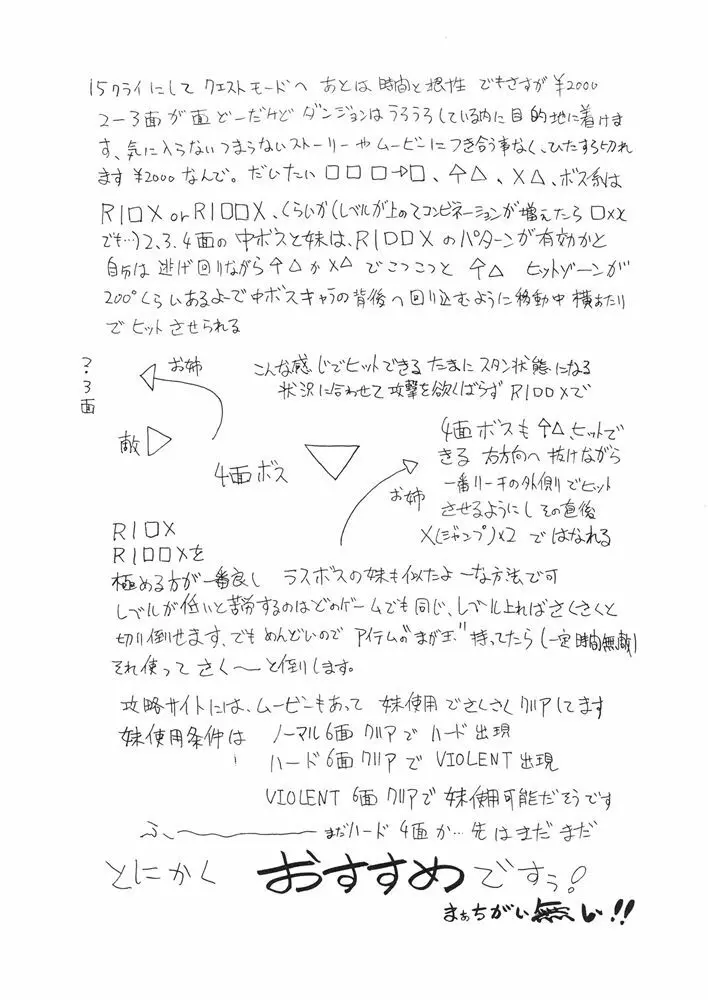 15クライにして クエストモードへ あとは 時間と根性 でもさすが ¥2000
2−3面が面どーだけど ダンジョンはうろうろしている内に目的地に着けま
す、気に入らないつまらないストーリーやムービーにつき合う事なく、ひたすら切れ
ます ¥2000 なんで。だいたい □□□→□、↑△、×△、ボス系は
R1□× or R1□□×、くらいか(レベルが上ってコンビネーションが増えたら □××
でも…)2、3、4面の中ボスと妹は、R1□□×のパターンが有効かと
自分は 逃げ回りながら ↑△か×△でこつこつと ↑△ ヒットゾーンが
200°くらいあるよーで中ボスキャラの背後へ回り込むように移動中 横あたり
でヒットさせられる
?.3面
お姉
敵
こんな感じでヒットできる たまに スタン状態になる
状況に合わせて攻撃を欲くばらず R1□□×で
4面ボス
お姉
4面ボスも ↑△、ヒットで
きる 右方向へ 抜けながら
一番リーチの外側でヒット
させるようにし その直後
×(ジャンプ)×2 ではなれる
R1□×
R1□□×を
極める方が一番良し ラスボスの妹も似たよーな方法で可
レベルが低いと苦労するのはどのゲームでも同じ、レベル上ればさくさくと
切り倒せます、でも めんどいので アイテムの"まが玉"持ってたら(一定時間無敵)
それ使って さく〜と倒します。
攻略サイトには、ムービーもあって 妹使用でさくさくクリアしてます
妹使用条件は ノーマル6面クリアで ハード出現
ハード6面クリアで VIOLENT出現
VIOLENT 6面クリアで 妹使用可能だそうです
ふ、〜 まだハード 4面か… 先はまだまだ
とにかく おすすめですぅ!
まぁちがい無し!!